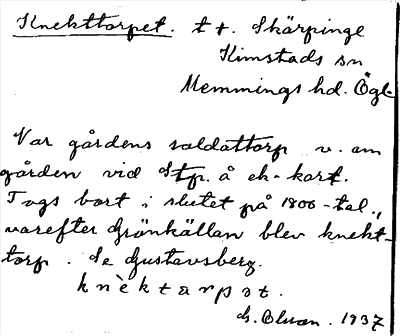 Knekttorpet. t t. Skärpinge
Kimstads sn
Memmings hd. Ögl.
Var gårdens soldattorp v. om
gården vid Stp. å ek-kart.
Togs bort i slutet på 1800-tal.,
varefter Grönkällan blev knekt-
torp. Se Gustavsberg.
knèktarpət.
G. Olsson. 1937